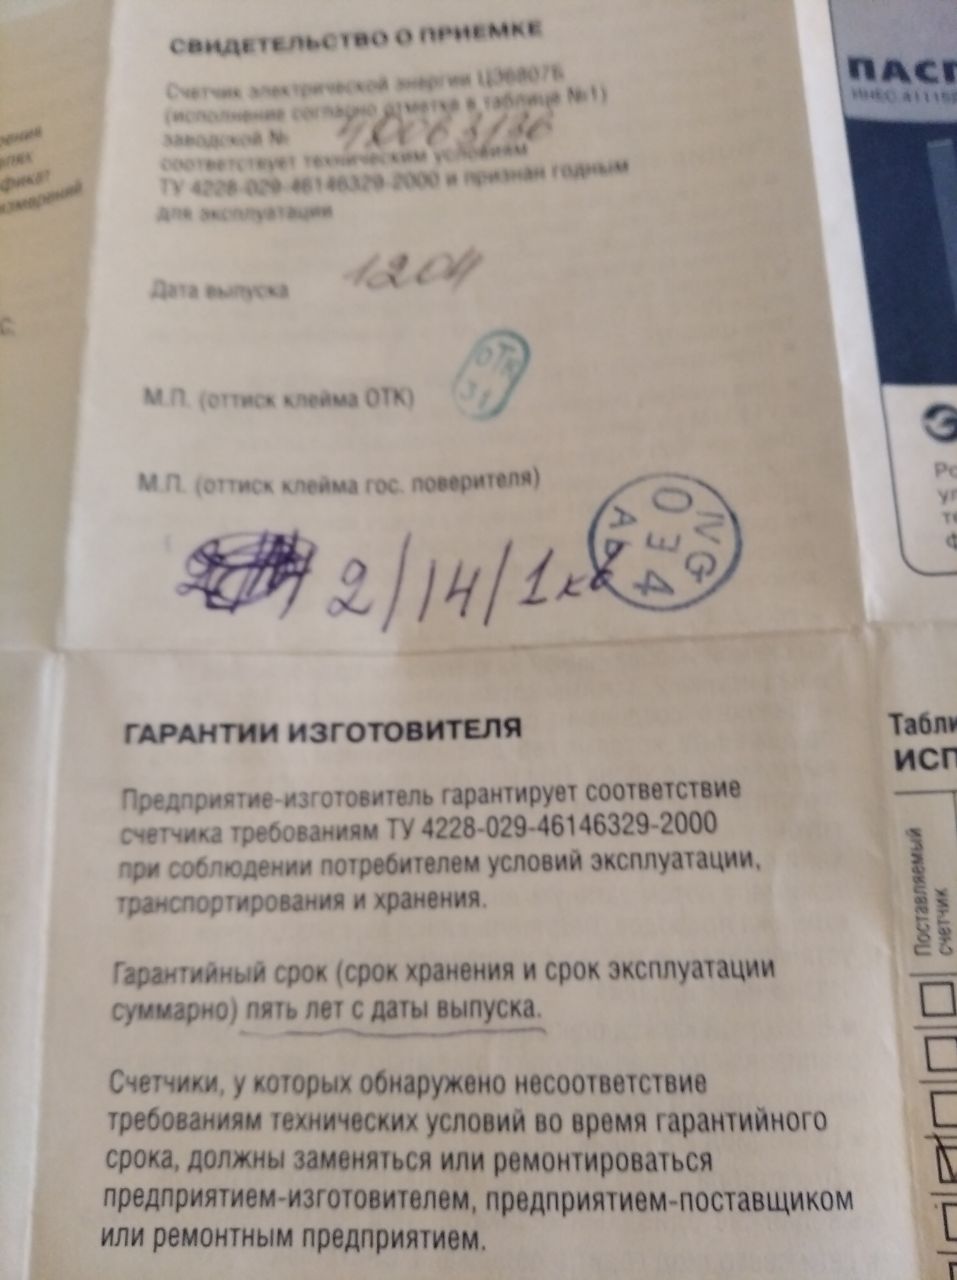 СВИДЕТЕЛЬСТВО О ПРИЕМКЕ
Счетчик электрической энергии ЦЭ6807Б
(исполнение согласно отметке в таблице №1)
заводской №
соответствует техническим условиям
ТУ 4228-029-46146329-2000 и признан годным
для эксплуатации
Дата выпуска 1204
М.П. (оттиск клейма ОТК)
ОТК
31
М.П. (оттиск клейма гос. поверителя)
IVG
034
АЬ
2/14/1 кв
ГАРАНТИИ ИЗГОТОВИТЕЛЯ
Предприятие-изготовитель гарантирует соответствие
счетчика требованиям ТУ 4228-029-46146329-2000
при соблюдении потребителем условий эксплуатации,
транспортирования и хранения.
Гарантийный срок (срок хранения и срок эксплуатации
суммарно) пять лет с даты выпуска.
Счетчики, у которых обнаружено несоответствие
требованиям технических условий во время гарантийного
срока, должны заменяться или ремонтироваться
предприятием-изготовителем, предприятием-поставщиком
или ремонтным предприятием.
ПАСП
Табли
ИСП
Поставляемый
счетчик